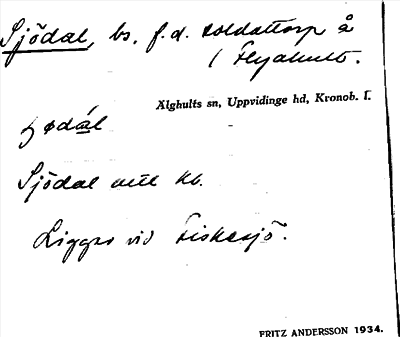 Sjödal, bs. f.d. soldattorp å
Flyahult.
Älghults sn, Uppvidinge hd, Kronob. l.
Sjödal
Liggr vid Fiskesjö.
FRITZ ANDERSSON 1934.